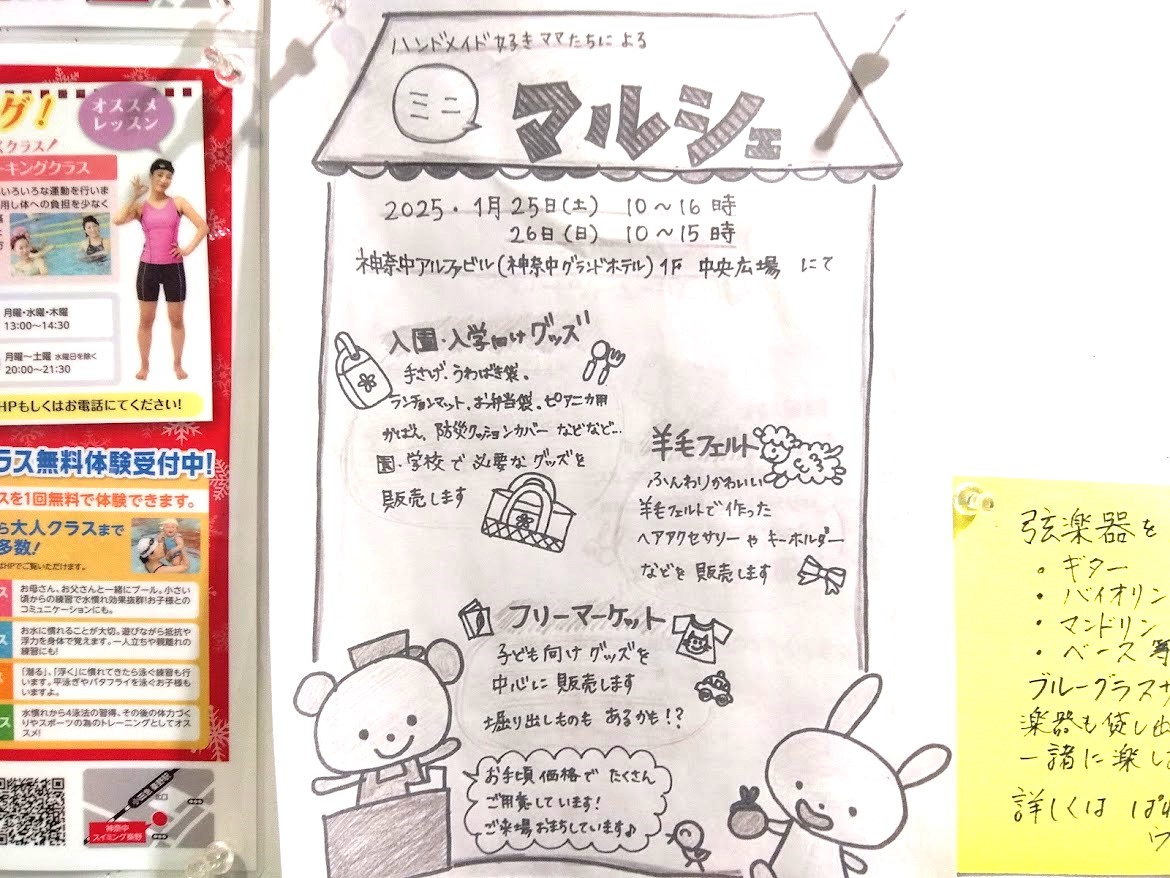 グ！
オススメ
レッスン
スクラス！
ーキングクラス
いろいろな運動を行いま
用し体への負担を少なく
月曜・水曜・木曜
13:00〜14:30
月曜〜土曜 水曜日を除く
20:00〜21:30
HPもしくはお電話にてください!
ラス無料体験受付中!
スを1回無料で体験できます。
ら大人クラスまで
多数!
はHPでご覧いただけます。
ス
お母さん、お父さんと一緒にプール。小さい
頃からの練習で水慣れ効果抜群!お子様との
コミュニケーションにも。
ス
お水に慣れることが大切。遊びながら抵抗や
浮力を身体で覚えます。一人立ちや親離れの
練習にも!
ス
「潜る」、「浮く」に慣れてきたら泳ぐ練習も行
います。平泳ぎやバタフライを泳ぐお子様も
いますよ。
ス
水慣れから4泳法の習得、その後の体力づく
りやスポーツの為のトレーニングとしてオス
スメ!
小田急 秦野駅
神奈中
スイミング秦野
ハンドメイド好きママたちによる
ミニ
マルシェ
2025・1月25日(土) 10〜16時
26日(日) 10〜15時
神奈中アルファビル(神奈中グランドホテル)1F 中央広場 にて
入園・入学向けグッズ
手さげ、うわばき袋、
ランチョンマット、お弁当袋、ピアニカ用
かばん、防災クッションカバー などなど…
園・学校で必要なグッズを
販売します
羊毛フェルト
ふんわりかわいい
羊毛フェルトで作った
ヘアアクセサリーやキーホルダー
などを販売します
フリーマーケット
子ども向けグッズを
中心に販売します
堀り出しものもあるかも!?
お手頃価格でたくさん
ご用意しています!
ご来場お待ちしています♪
弦楽器を
。ギター
・バイオリン
・マンドリン
・ベース 等
ブルーグラス
楽器も貸し出
一諸に楽し
詳しくは